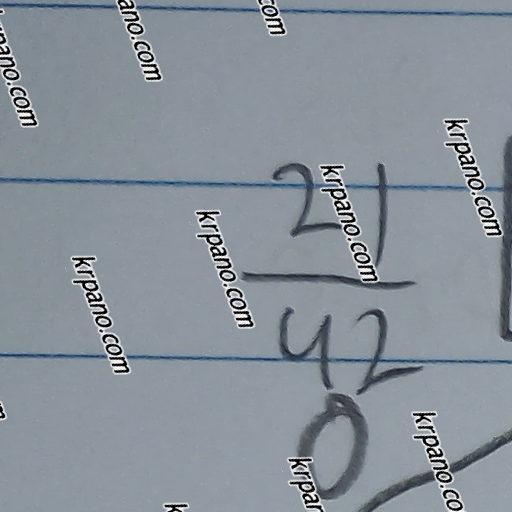 krpano.com
ano.com
com
pano.com
krpano.com
krpano.com
krpano.com
krpano.com
krpano.co
krpan
k
2 1
4 2
0